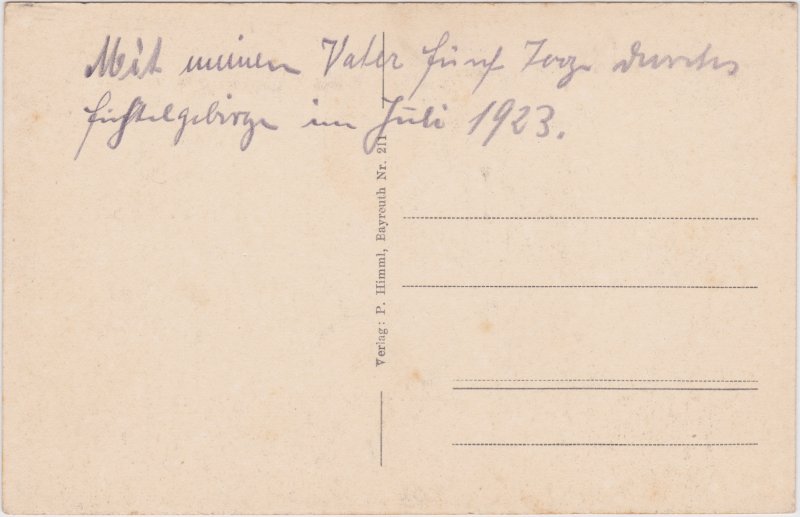 Mit meinem Vater fünf Tage durchs
Fichtelgebirge im Juli 1923.
Verlag: P. Himml, Bayreuth Nr. 211